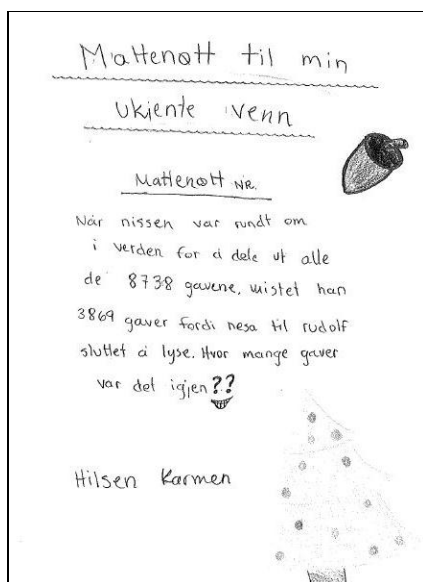 Mattenøtt til min
Ukjente venn
Mattenøtt NR.
Når nissen var rundt om
i verden for å dele ut alle
de 8738 gavene, mistet han
3869 gaver fordi nesa til rudolf
sluttet å lyse. Hvor mange gaver
var det igjen??
Hilsen Karmen